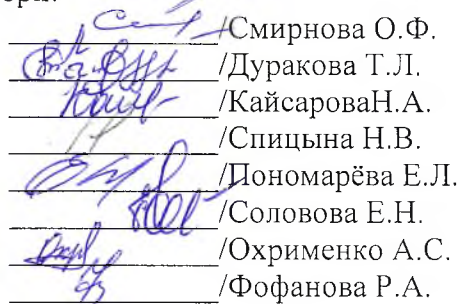 /Смирнова О.Ф.
/Дуракова Т.Л.
/КайсароваН.А.
/Спицына Н.В.
/Пономарёва Е.Л.
/Соловова Е.Н.
/Охрименко А.С.
/Фофанова Р.А.